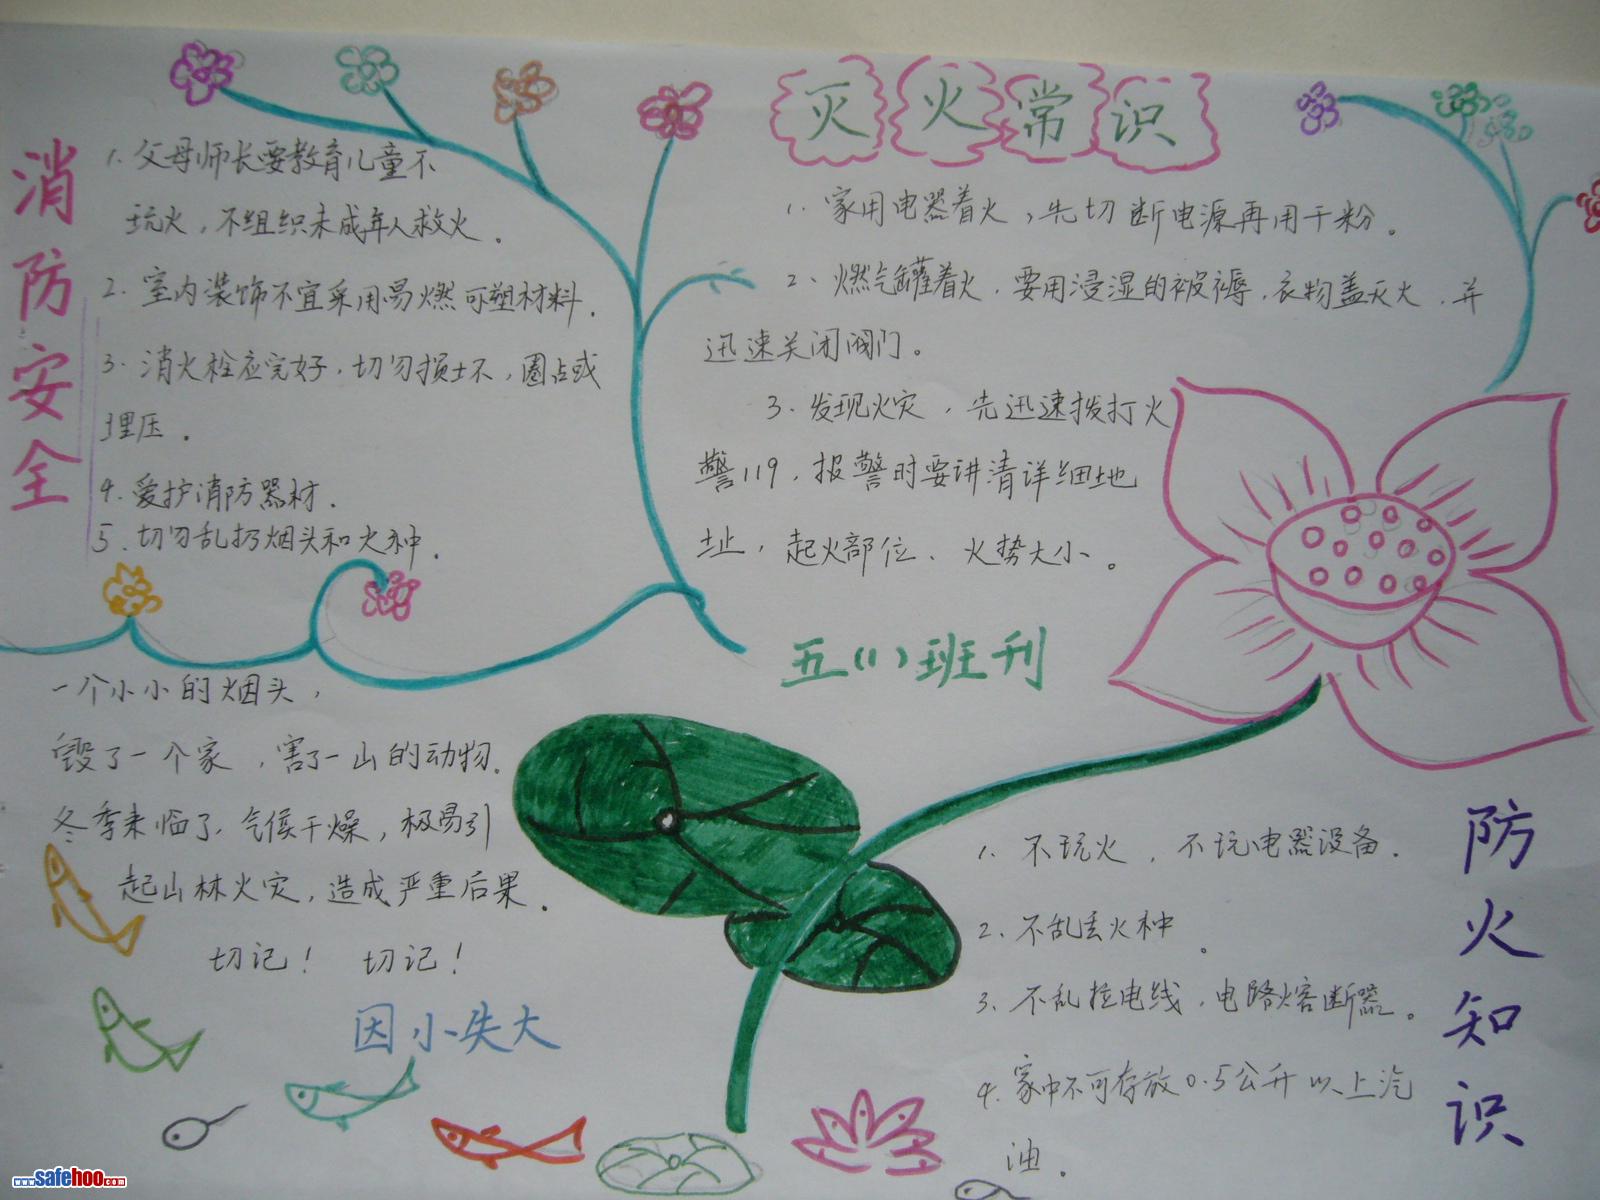 消防安全
1. 父母师长要教育儿童不
玩火，不组织未成年人救火。
2. 室内装饰不宜采用易燃可塑材料.
3. 消火栓应完好，切勿损坏，圈占或
埋压。
4. 爱护消防器材.
5. 切勿乱扔烟头和火种.
灭火常识
1. 家用电器着火，先切断电源再用干粉。
2、燃气罐着火，要用浸湿的被褥，衣物盖灭火，并
迅速关闭阀门。
3、发现火灾，先迅速拨打火
警119，报警时要讲清详细地
址，起火部位、火势大小。
五(1)班刊
一个小小的烟头，
毁了一个家，害了一山的动物.
冬季来临了，气侯干燥，极易引
起山林火灾，造成严重后果.
切记！ 切记！
因小失大
防火知识
1. 不玩火，不玩电器设备.
2. 不乱丢火种。
3. 不乱拉电线，电路熔断器。
4. 家中不可存放0.5公升以上汽
油.
www.safehoo.com